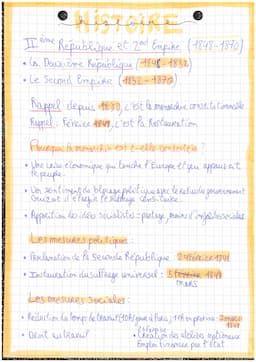 HISTOIRE
IIème République et 2nd Empire (1848-1870)
• La Deuxième République (1848-1852)
• Le Second Empire (1852-1870)
Rappel: depuis, c'est la monarchie constitutionnelle
Rappel: Février, c'est la Restauration
Pourquoi la monarchie est-elle contestée?
• Une crise économique qui touche l'Europe et qui appauvrit
le peuple.
• Un sentiment de blocage politique avec le refus du gouvernement
Guizot d'élargir le suffrage censitaire.
• Apparition des idées socialistes: partage, moins d'inégalités sociales
Les mesures politiques:
• Proclamation de la Seconde République 24 Février 1848
• Instauration du suffrage universel: 5 1848
mars
Les mesures sociales:
• Réduction du temps de travail (10h/jour à Paris; 11h en province 2 mars
1848
• Droit au travail
• Création des ateliers nationaux
Emploi financé par l'Etat